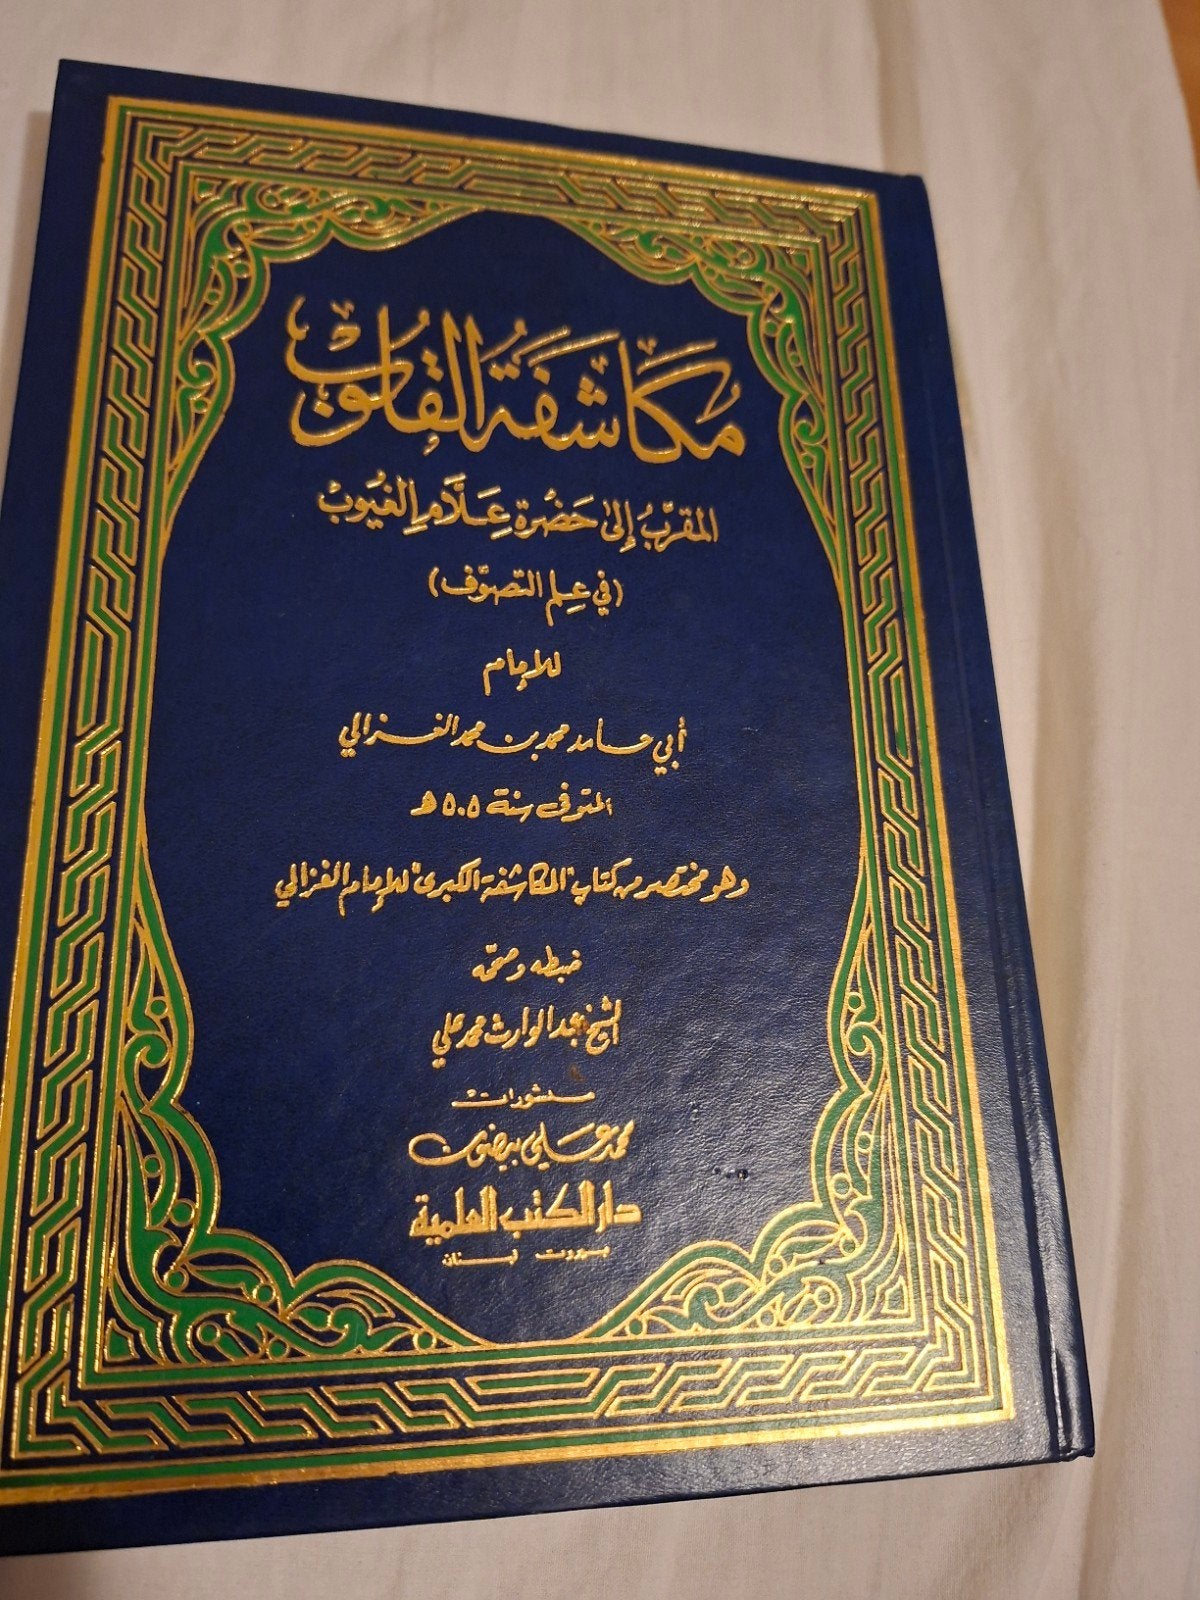 مكاشفة القلوب
المقرّب إلى حضرة علّام الغيوب
(في علم التصوّف)
للإمام
أبي حامد محمد بن محمد الغزالي
المتوفى سنة ٥٠٥ هـ
وهو مختصر من كتاب "المكاشفة الكبرى" للإمام الغزالي
ضبطه وصححه
الشيخ عبد الوارث محمد علي
منشورات
محمد علي بيضون
دار الكتب العلمية
بيروت لبنان